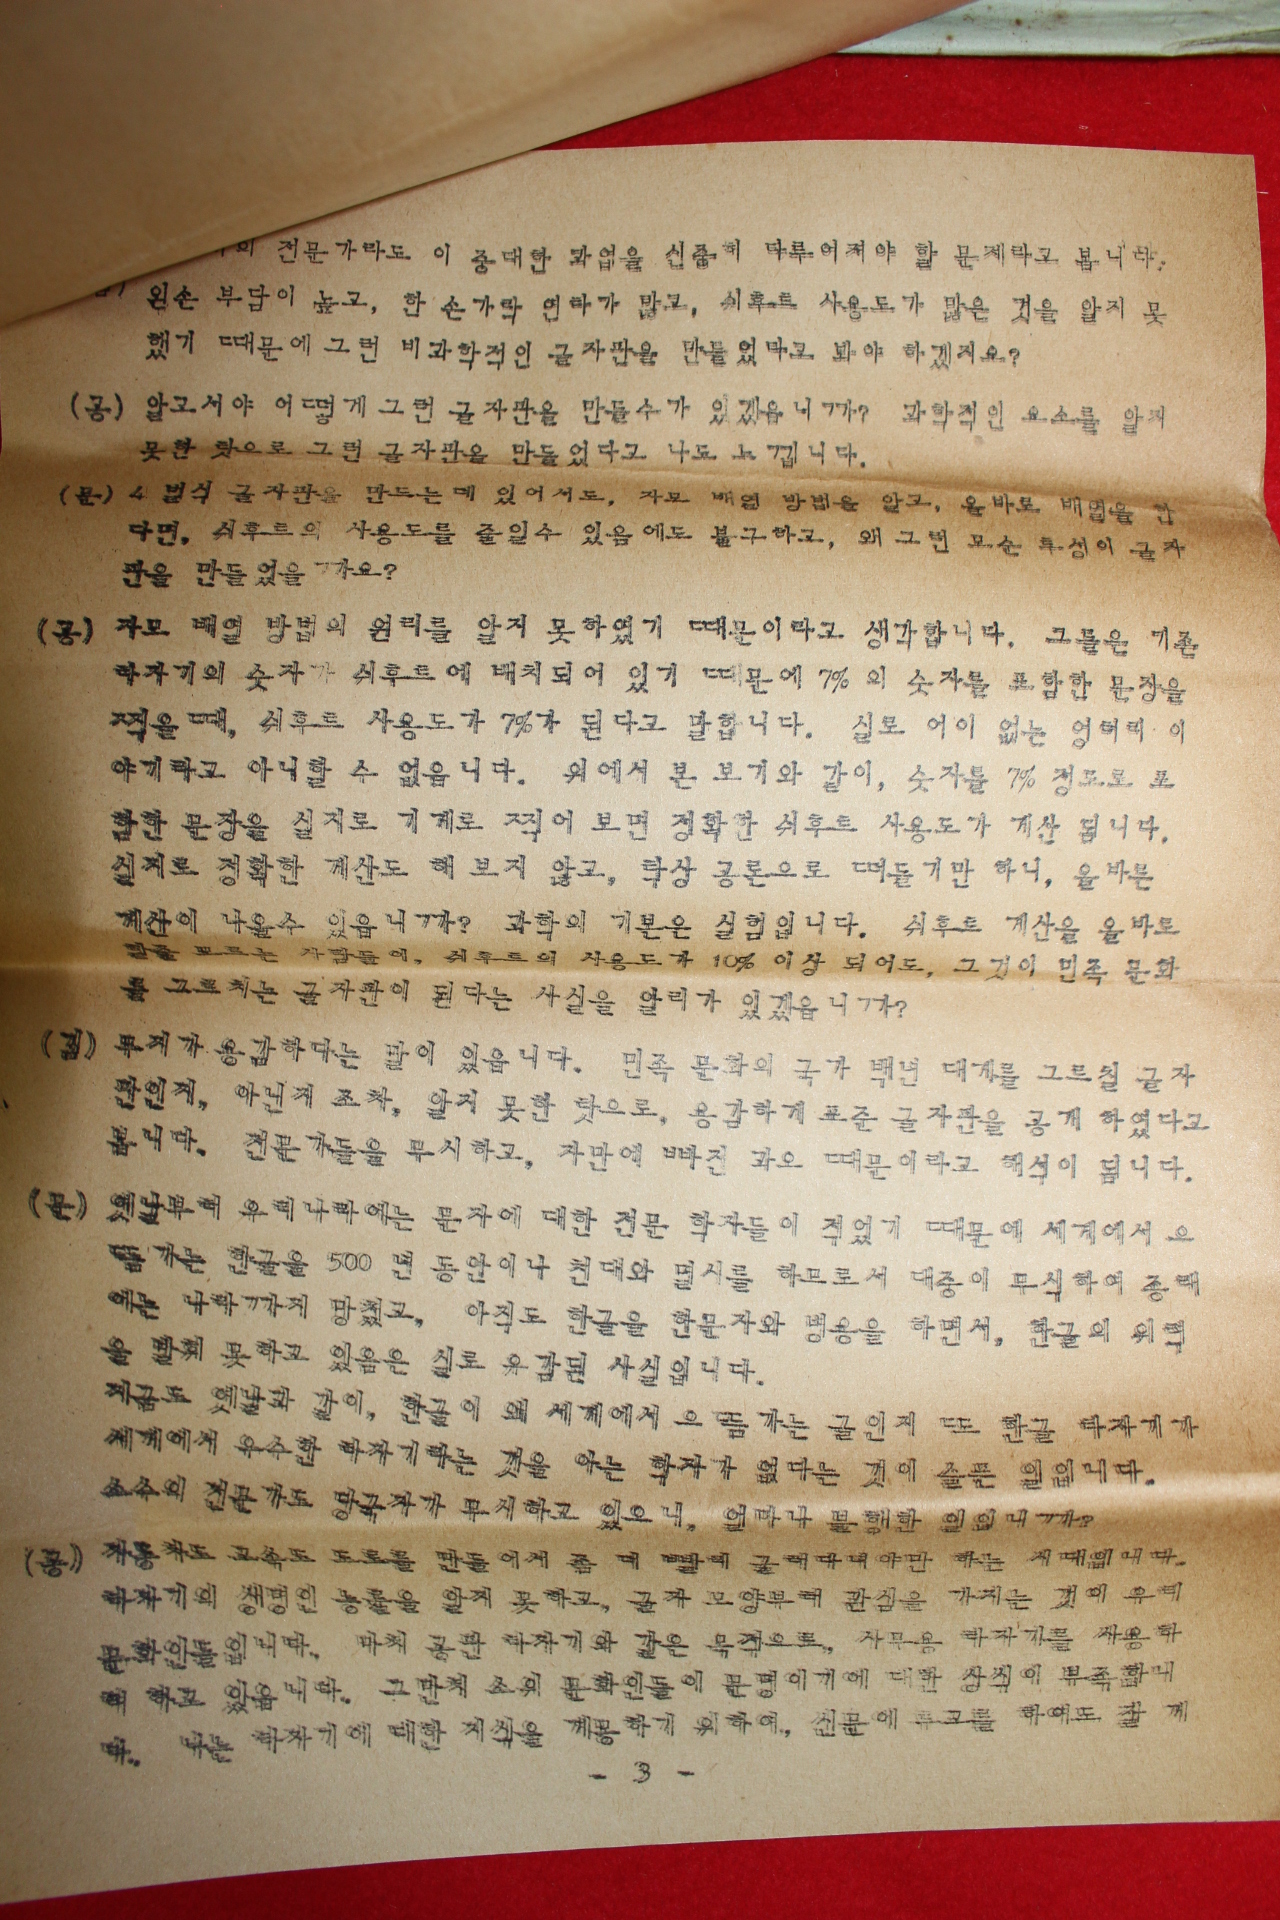 의 전문가라도 이 중대한 과업을 신중히 다루어져야 할 문제라고 봅니다.
왼손 부담이 높고, 한 손가락 연타가 많고, 쉬후트 사용도가 많은 것을 알지 못
했기 때문에 그런 비과학적인 글자판을 만들었다고 봐야 하겠지요?
(공) 알고서야 어떻게 그런 글자판을 만들수가 있겠읍니까? 과학적인 요소를 알지
못한 탓으로 그런 글자판을 만들었다고 나도 느낍니다.
(문) 4 벌식 글자판을 만드는데 있어서도, 자모 배열 방법을 알고, 올바로 배열을 한
다면, 쉬후트의 사용도를 줄일수 있음에도 불구하고, 왜 그런 모순 투성이 글자
판을 만들었을까요?
(공) 자모 배열 방법의 원리를 알지 못하였기 때문이라고 생각합니다. 그들은 기존
타자기의 숫자가 쉬후트에 배치되어 있기 때문에 7% 의 숫자를 포함한 문장을
찍을 때, 쉬후트 사용도가 7%가 된다고 말합니다. 실로 어이 없는 엉터리 이
야기라고 아니할 수 없읍니다. 위에서 본 보기와 같이, 숫자를 7% 정도로 포
함한 문장을 실지로 기계로 찍어 보면 정확한 쉬후트 사용도가 계산 됩니다.
실지로 정확한 계산도 해 보지 않고, 탁상 공론으로 떠들기만 하니, 올바른
계산이 나올수 있읍니까? 과학의 기본은 실험입니다. 쉬후트 계산을 올바로
할줄 모르는 사람들이, 쉬후트의 사용도가 10% 이상 되어도, 그것이 민족 문화
를 그르치는 글자판이 된다는 사실을 알리가 있겠읍니까?
(김) 무지가 용감하다는 말이 있읍니다. 민족 문화의 국가 백년 대계를 그르칠 글자
판인지, 아닌지 조차, 알지 못한 탓으로, 용감하게 표준 글자판을 공개 하였다고
봅니다. 전문가들을 무시하고, 자만에 빠진 과오 때문이라고 해석이 됩니다.
(문) 옛날부터 우리나라에는 문자에 대한 전문 학자들이 적었기 때문에 세계에서 으
뜸가는 한글을 500 년 동안이나 천대와 멸시를 하므로서 대중이 무식하여 종래
에는 나라까지 망쳤고, 아직도 한글을 한문자와 병용을 하면서, 한글의 위력
을 펼치 못하고 있음은 실로 유감된 사실입니다.
지금도 옛날과 같이, 한글이 왜 세계에서 으뜸가는 글인지 또 한글 타자기가
세계에서 우수한 타자기라는 것을 아는 학자가 없다는 것이 슬픈 일입니다.
소수의 전문가도 당국자가 무시하고 있으니, 얼마나 불행한 일입니까?
(공) 자동차도 고속도 도로를 만들어서 좀 더 빨리 굴러다녀야만 하는 시대입니다.
타자기의 생명인 능률을 알지 못하고, 글자 모양부터 관심을 가지는 것이 우리
문화인들입니다. 마치 공판 타자기와 같은 목적으로, 사무용 타자기를 사용하
려 하고 있읍니다. 그만치 소위 문화인들이 문명이기에 대한 상식이 부족합니
다. 나는 타자기에 대한 지식을 계몽하기 위하여, 신문에 투고를 하여도 잘 게
- 3 -